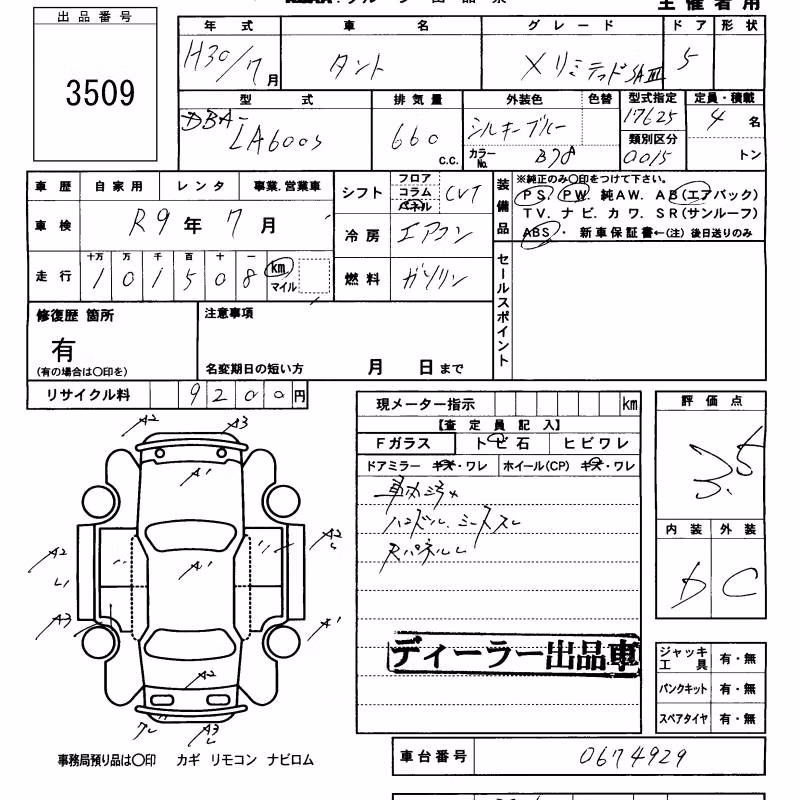 主催者用
出品番号
3509
年式 車名 グレード ドア 形状
H30/7月 タント Xリミテッド SAⅢ 5
型式 排気量 外装色 色替 型式指定 定員・積載
DBA-LA600S 660 c.c. シルキーブルー 17625 4名
カラーNo. B78 類別区分 0015 トン
車歴 自家用 レンタ 事業.営業車
車検 R9年7月
走行 十万 万 千 百 十 一
101508 km マイル
シフト フロア コラム パネル CVT
冷房 エアコン
燃料 ガソリン
装備品
※純正のみ○印をつけて下さい。
PS. PW. 純AW. AB(エアバック)
TV. ナビ. カワ. SR(サンルーフ)
ABS・ 新車保証書←(注)後日送りのみ
セールスポイント
修復歴 箇所
有
(有の場合は○印を)
注意事項
名変期日の短い方 月 日まで
リサイクル料 9200円
現メーター指示 km
【査定員記入】
Fガラス トビ石 ヒビワレ
ドアミラー キズ・ワレ ホイール(CP) キズ・ワレ
車内汚れ
ハンドル、シートスレ
評価点
3.5
内装 外装
D C
A2 A3
A1
A2 A2
A1
A3 A1
A2
A3
ディーラー出品車
ジャッキ工具 有・無
パンクキット 有・無
スペアタイヤ 有・無
事務局預り品は○印 カギ リモコン ナビロム
車台番号 0674929